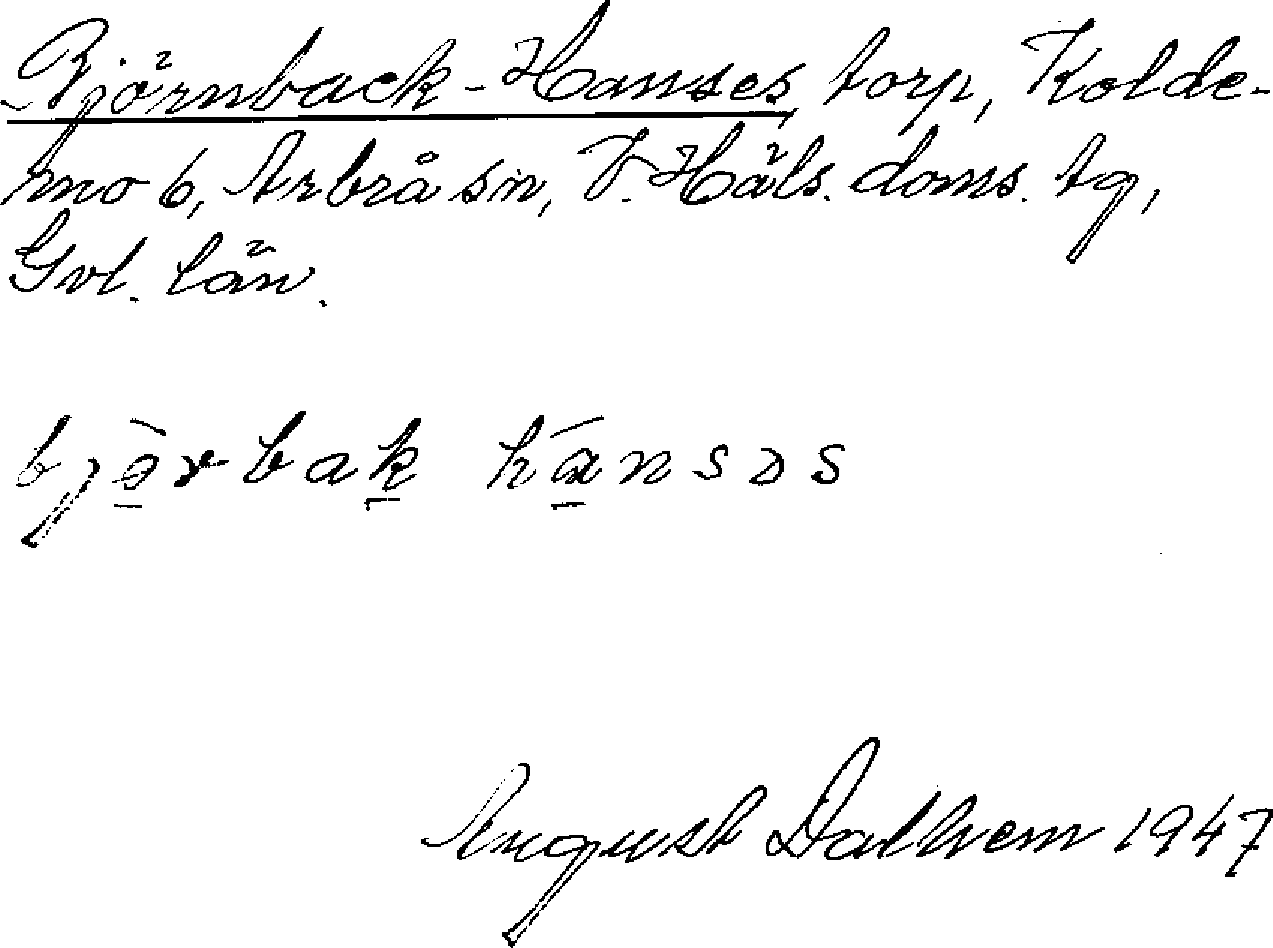 Björnback-Hanses, torp, Kolde-
mo 6, Arbrå sn, V. Häls. doms. tg,
Gvl. län.
bjòrbak hánsəs
August Dalhem 1947